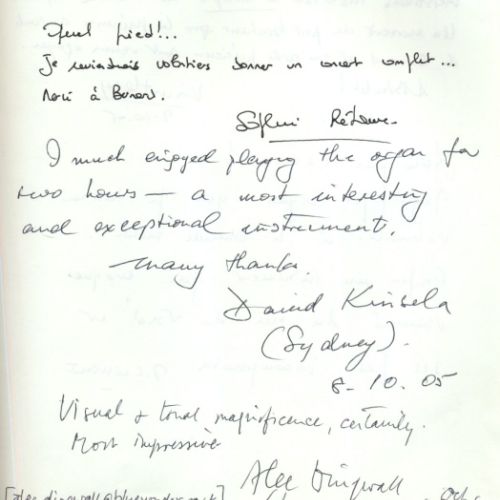 Quel pied!...
Je reviendrais volontiers donner un concert complet...
Merci à Bernard.
Sophie Rétaux
I much enjoyed playing the organ for
two hours — a most interesting
and exceptional instrument.
Many thanks.
David Kinsela
(Sydney).
8-10.05
Visual & tonal magnificence, certainly.
Most impressive
Alec Dingwall
Oct.